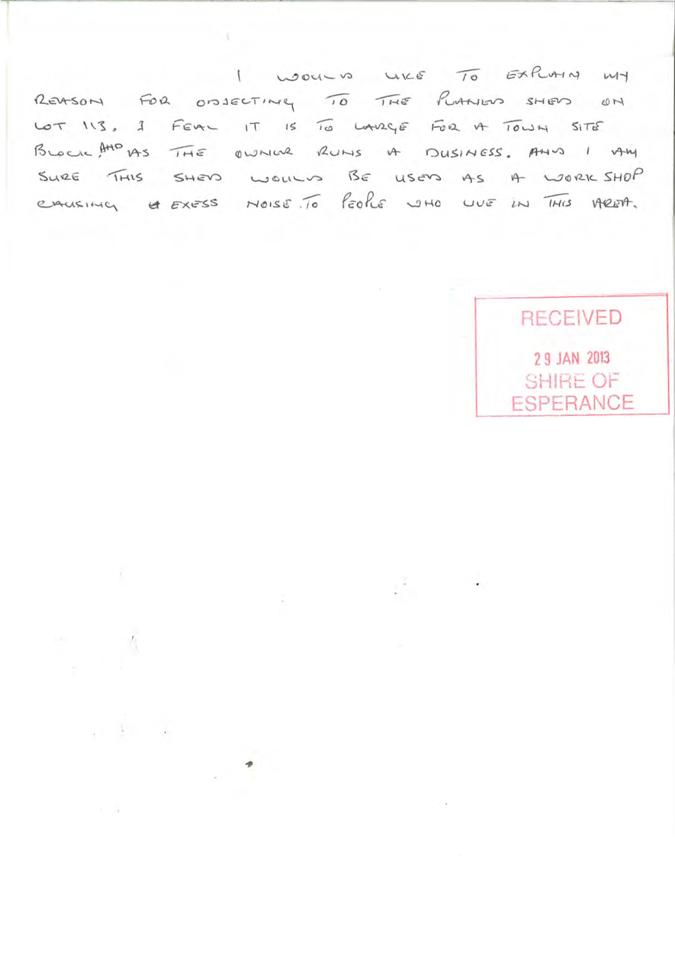 I WOULD LIKE TO EXPLAIN MY
REASON FOR OBJECTING TO THE PLANED SHED ON
LOT 113. I FEAL IT IS TO LARGE FOR A TOWN SITE
BLOCK, AND AS THE OWNUR RUNS A BUSINESS. AND I AM
SURE THIS SHED WOULD BE USED AS A WORK SHOP
CAUSING EXESS NOISE. TO PEOPLE WHO LIVE IN THIS AREA.
RECEIVED
29 JAN 2013
SHIRE OF
ESPERANCE